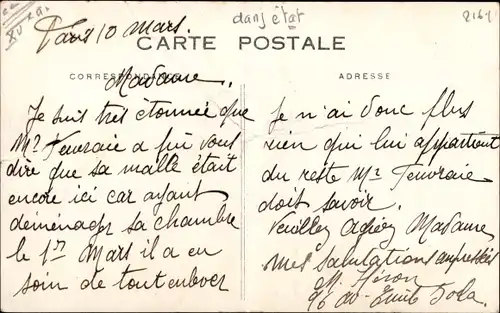 Paris 10 Mars.
dans état
2164
CARTE POSTALE
CORRESPONDANCE
ADRESSE
Madame,
Je suis très étonnée que
Mr Feuvraie a pu vous
dire que sa malle était
encore ici car ayant
déménager sa chambre
le 1er Mars il a eu
soin de tout enlever
Je n'ai donc plus
rien qui lui appartient
du reste Mr Feuvraie
doit savoir.
Veuillez Agréez Madame
mes salutations empressées
M. Héron
96 av. Emile Zola.